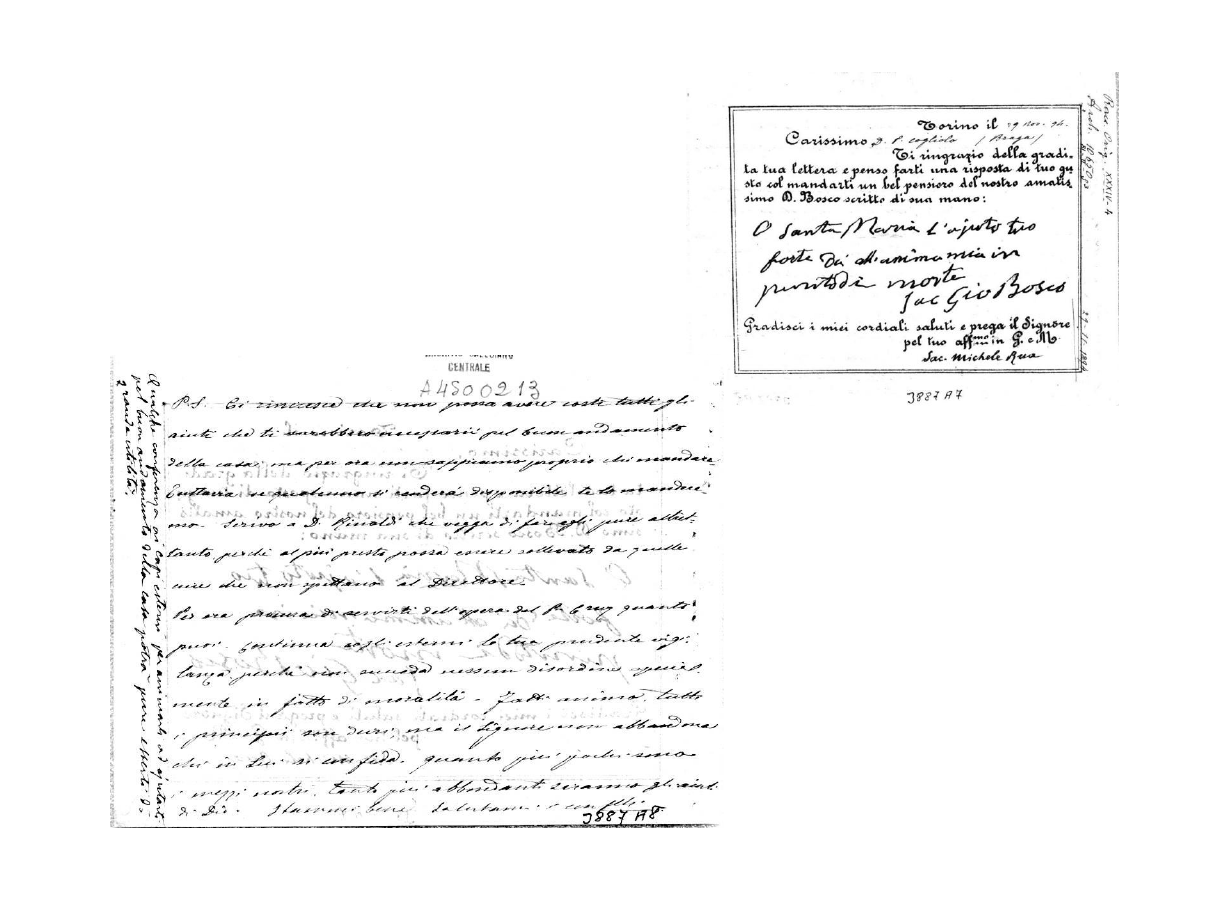 Torino il 29 Nov. 94.
Carissimo D. P. Cogliolo (Braga)
Ti ringrazio della gradi-
ta tua lettera e penso farti una risposta di tuo gu-
sto col mandarti un bel pensiero del nostro amatis-
simo D. Bosco scritto di sua mano:
O Santa Maria l'ajuto tuo
forte dà all'anima mia in
punto di morte
Sac Gio Bosco
Gradisci i miei cordiali saluti e prega il Signore
pel tuo aff.mo in G. e M.
Sac. Michele Rua
3887 A7
CENTRALE
A4500213
P.S. Ci rincresce che non possa avere coste tutti gli
aiuti che ti sarebbero necessarii pel buon andamento
della casa; ma per ora non sappiamo proprio chi mandare
Tuttavia se qualcuno si renderà disponibile te lo mandere-
mo. Scrivo a D. Rinaldi che vegga di far egli pure altret-
tanto perchè al più presto possa essere sollevato da quelle
cure che non spettano al Direttore.
Per ora procura di servirti dell'opera del P. Cruz quanto
puoi. Continua cogli esterni la tua prudente vigi-
lanza perchè non succeda nessun disordine special
mente in fatto di moralità. Fatti animo, tutti
i principii son duri, ma il Signore non abbandona
chi in Lui si confida. Quanto più pochi sono
i mezzi nostri, tanto più abbondanti saranno gli aiuti
di Dio. Stammi bene
3887 A8
Qualche conferenza ai capi esterni per animarli ad ajutarti
pel buon andamento della casa potrà pure esserti di
grande utilità.